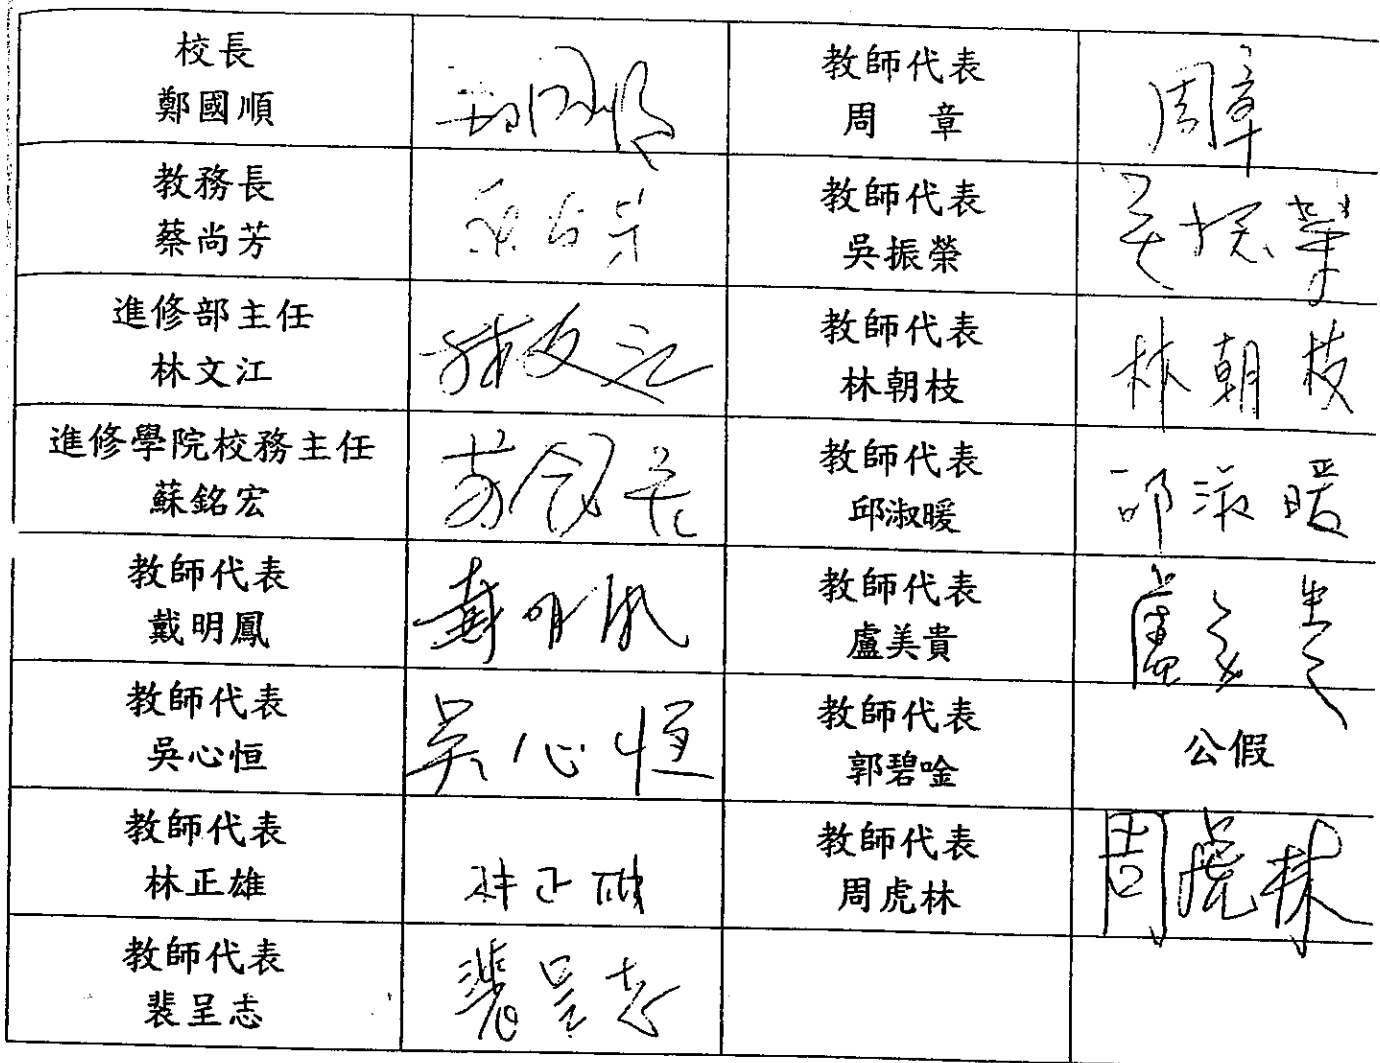 校長
鄭國順
鄭國順
教師代表
周 章
周章
教務長
蔡尚芳
蔡尚芳
教師代表
吳振榮
吳振榮
進修部主任
林文江
林文江
教師代表
林朝枝
林朝枝
進修學院校務主任
蘇銘宏
蘇銘宏
教師代表
邱淑暖
邱淑暖
教師代表
戴明鳳
戴明鳳
教師代表
盧美貴
盧美貴
教師代表
吳心恒
吳心恒
教師代表
郭碧唫
公假
教師代表
林正雄
林正雄
教師代表
周虎林
周虎林
教師代表
裴呈志
裴呈志